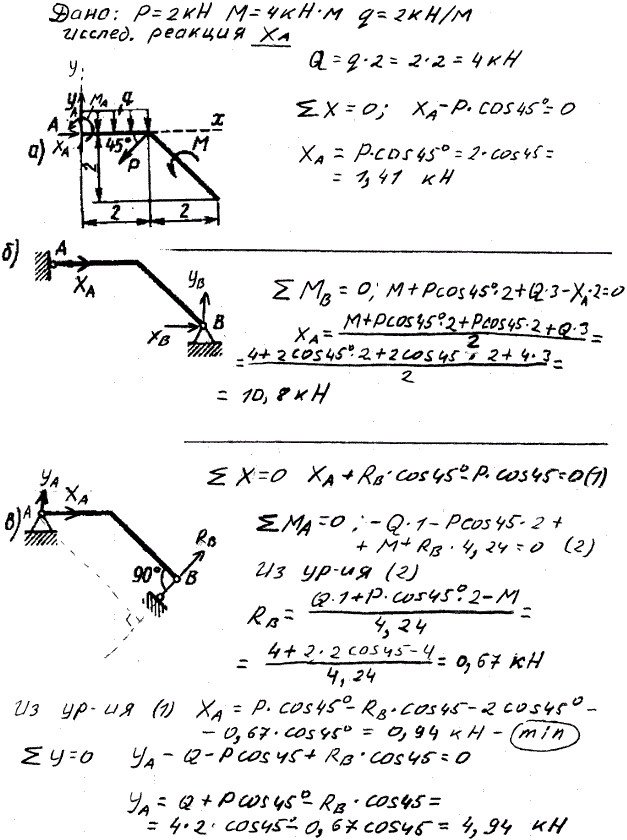 Дано: P=2кН M=4кН·м q=2кН/м
исслед. реакция XA
Q=q·2=2·2=4кН
ΣX=0; XA-P·cos45°=0
XA=P·cos45°=2·cos45=
=1,41 кН
y
y MA q
A x
XA 45° P M
а)
2
2 2
б) A
XA
yB
XB B
ΣMB=0; M+Pcos45°·2+Q·3-XA·2=0
XA=M+Pcos45°·2+Pcos45·2+Q·3/2=
=4+2cos45°·2+2cos45·2+4·3/2=
=10,8кН
в) yA
A XA
RB
90° B
ΣX=0 XA+RB·cos45°-P·cos45=0(1)
ΣMA=0; -Q·1-Pcos45·2+
+M+RB·4,24=0 (2)
Из ур-ия (2)
RB=Q·1+P·cos45°·2-M/4,24=
=4+2·2cos45-4/4,24=0,67 кН
Из ур-ия (1) XA=P·cos45°-RB·cos45-2cos45°-
-0,67·cos45°=0,94 кН-min
Σy=0 yA-Q-Pcos45+RB·cos45=0
yA=Q+Pcos45°-RB·cos45=
=4·2·cos45°-0,67cos45=4,94 кН